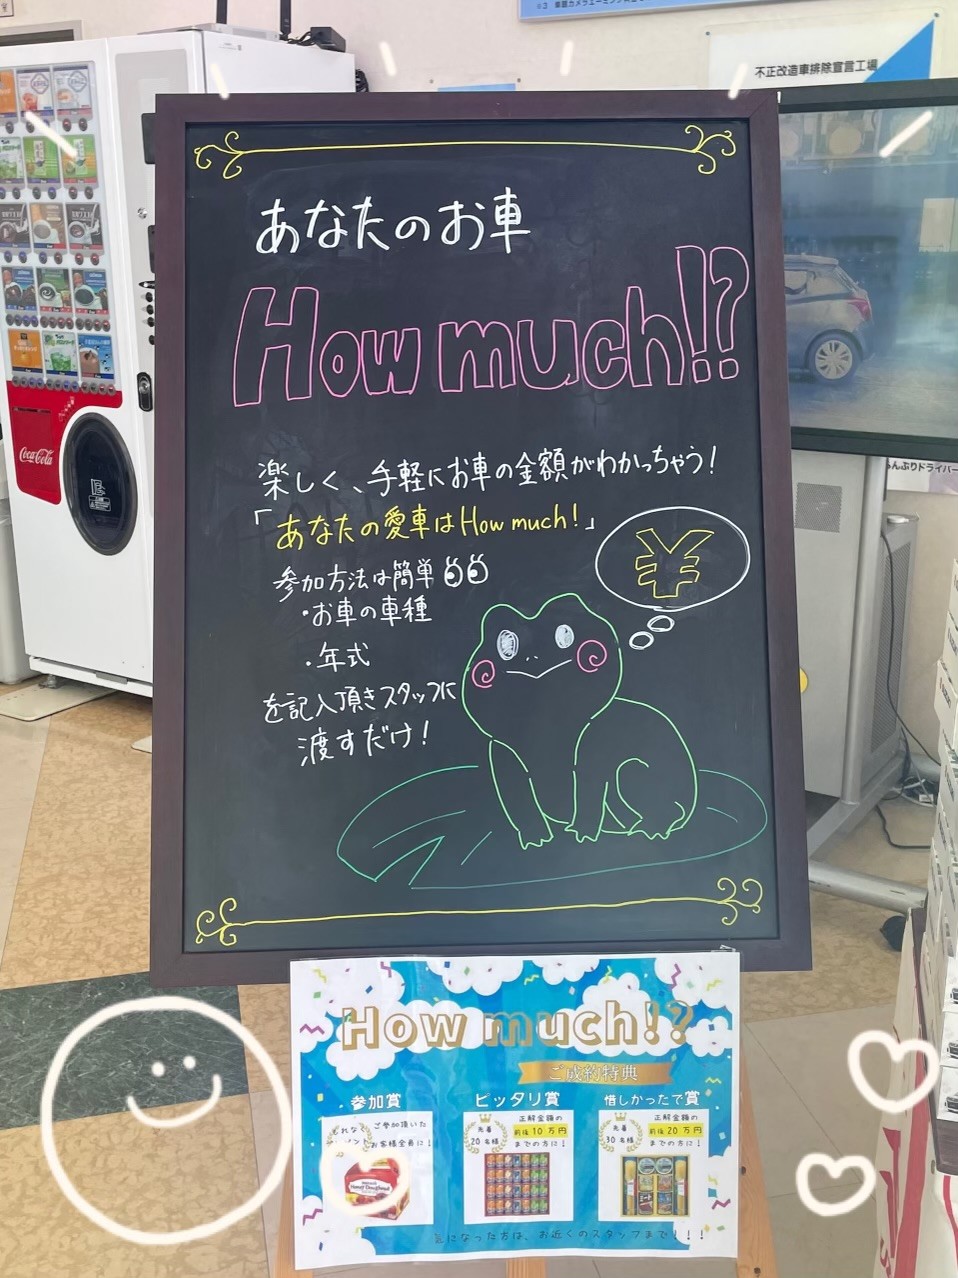 不正改造車排除宣言工場
あなたのお車
How much!?
楽しく、手軽にお車の金額がわかっちゃう!
「あなたの愛車はHow much!」
参加方法は簡単
・お車の車種
・年式
を記入頂きスタッフに
渡すだけ!
¥
Coca-Cola
How much!?
ご成約特典
参加賞
ご参加頂いた
お客様全員に!
ピッタリ賞
先着
20名様
正解金額の
前後10万円
までの方に!
惜しかったで賞
先着
30名様
正解金額の
前後20万円
までの方に!
気になった方は、お近くのスタッフまで!!!